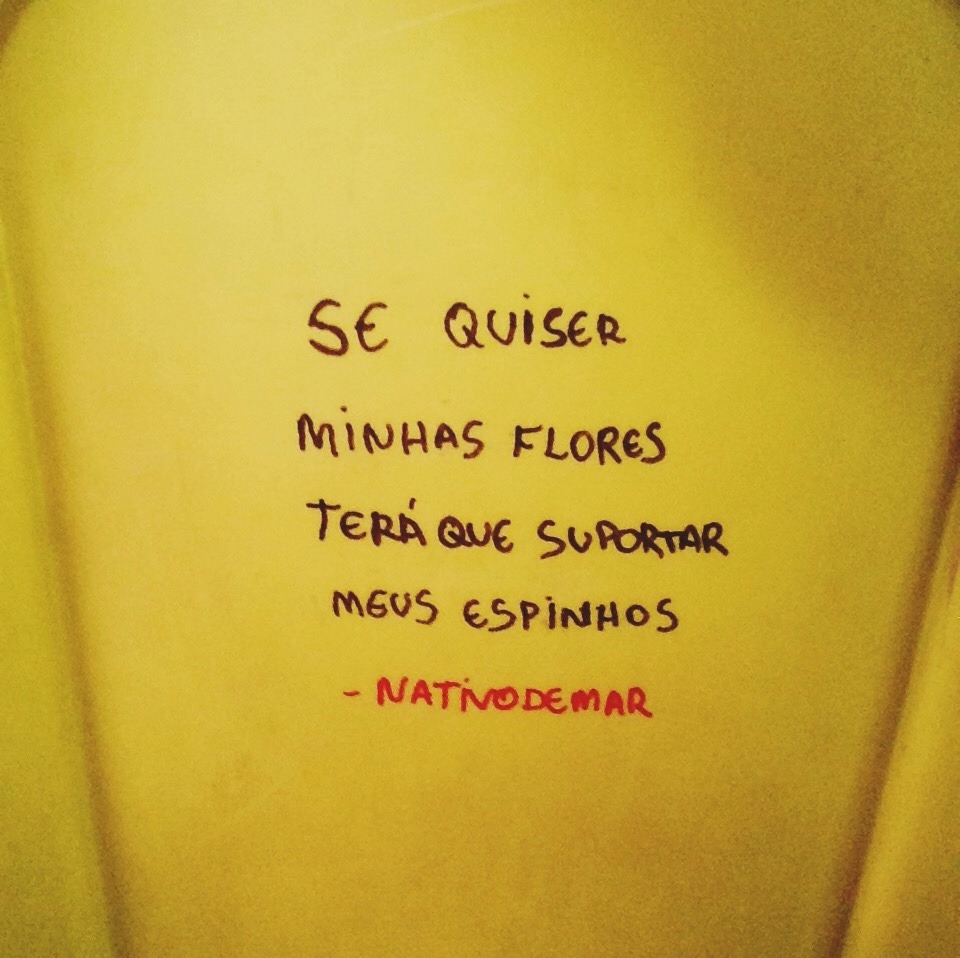 SE QUISER
MINHAS FLORES
TERÁ QUE SUPORTAR
MEUS ESPINHOS
- NATIVODEMAR